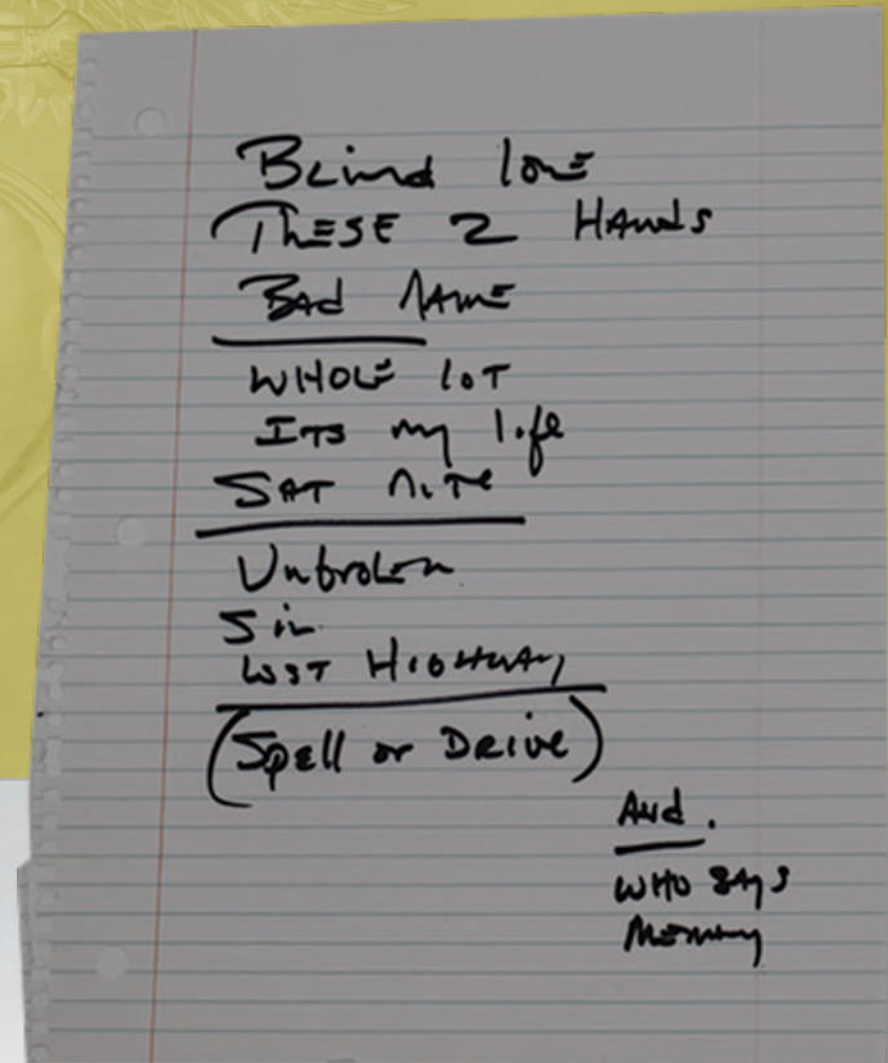 Blind love
THESE 2 HANds
BAd NAME
WHOLE loT
ITS my life
SAT NiTe
Unbroken
Sin
LOST HIGHWAy
(Spell or DRive)
AUd.
WHO SAys
MEmory